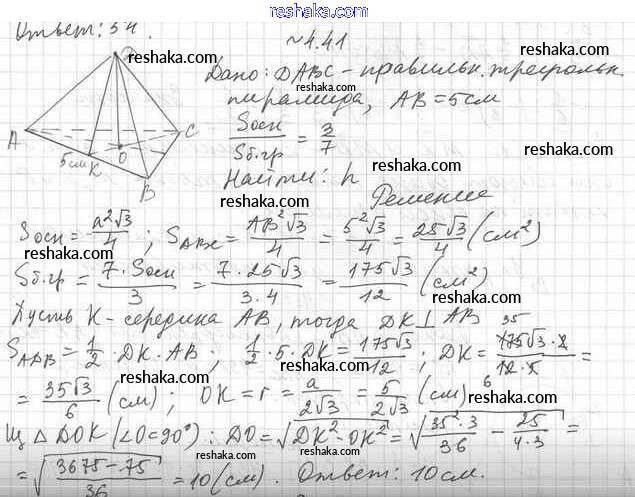 reshaka.com
Ответ: 54.
№4.41
reshaka.com
Дано: DABC – правильн. треугольн.
пирамида, AB = 5 см
Sосн / Sб.гр = 3/7
reshaka.com
Найти: h
Решение
A
C
O
K
B
5см
reshaka.com
reshaka.com
reshaka.com
Sосн = a²√3/4 ; S_ABC = AB²√3/4 = 5²√3/4 = 25√3/4 (см²)
reshaka.com
Sб.гр = 7·Sосн/3 = 7·25√3/3·4 = 175√3/12 (см²)
reshaka.com
reshaka.com
Пусть K – середина AB, тогда DK⊥AB
S_ADB = 1/2 · DK · AB ; 1/2 · 5 · DK = 175√3/12 ; DK = 175√3·2/12·5 =
reshaka.com
reshaka.com
= 35√3/6 (см) ; OK = r = a/2√3 = 5/2√3 (см)
reshaka.com
Из △DOK (∠O=90°) : DO = √(DK²–OK²) = √(35²·3/36 – 25/4·3) =
reshaka.com
reshaka.com
= √(3675–75/36) = 10 (см). Ответ: 10см.
reshaka.com
reshaka.com